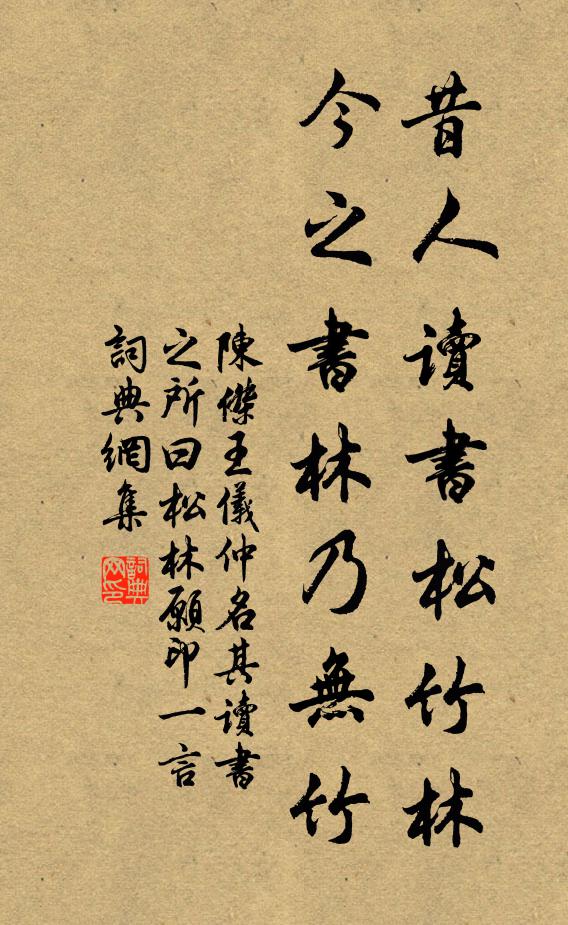 昔人讀書松竹林
今之書林乃無竹
陳傑王儀仲名其讀書
之所曰松林願印一言
詞典網集
詞典
网印